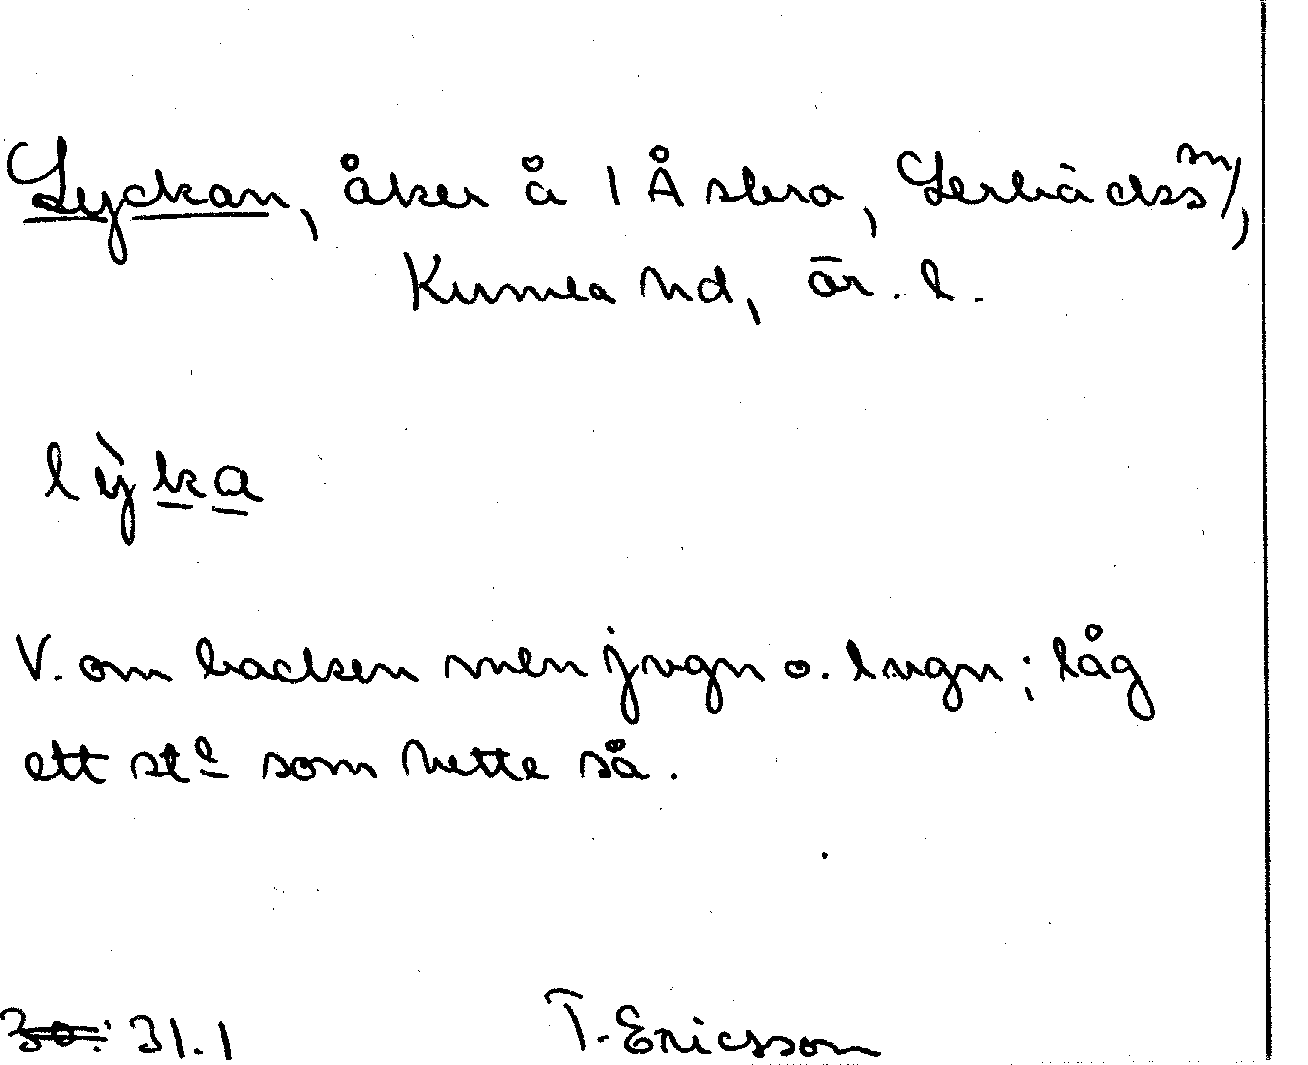 Lyckan, åker å 1 Åsbro, Lerbäcks sn/,
Kumla hd, ör. l.
lỳka
V. om backen men jugn o. lugn; låg
ett stº som hette så.
30: 31.1 T. Ericsson